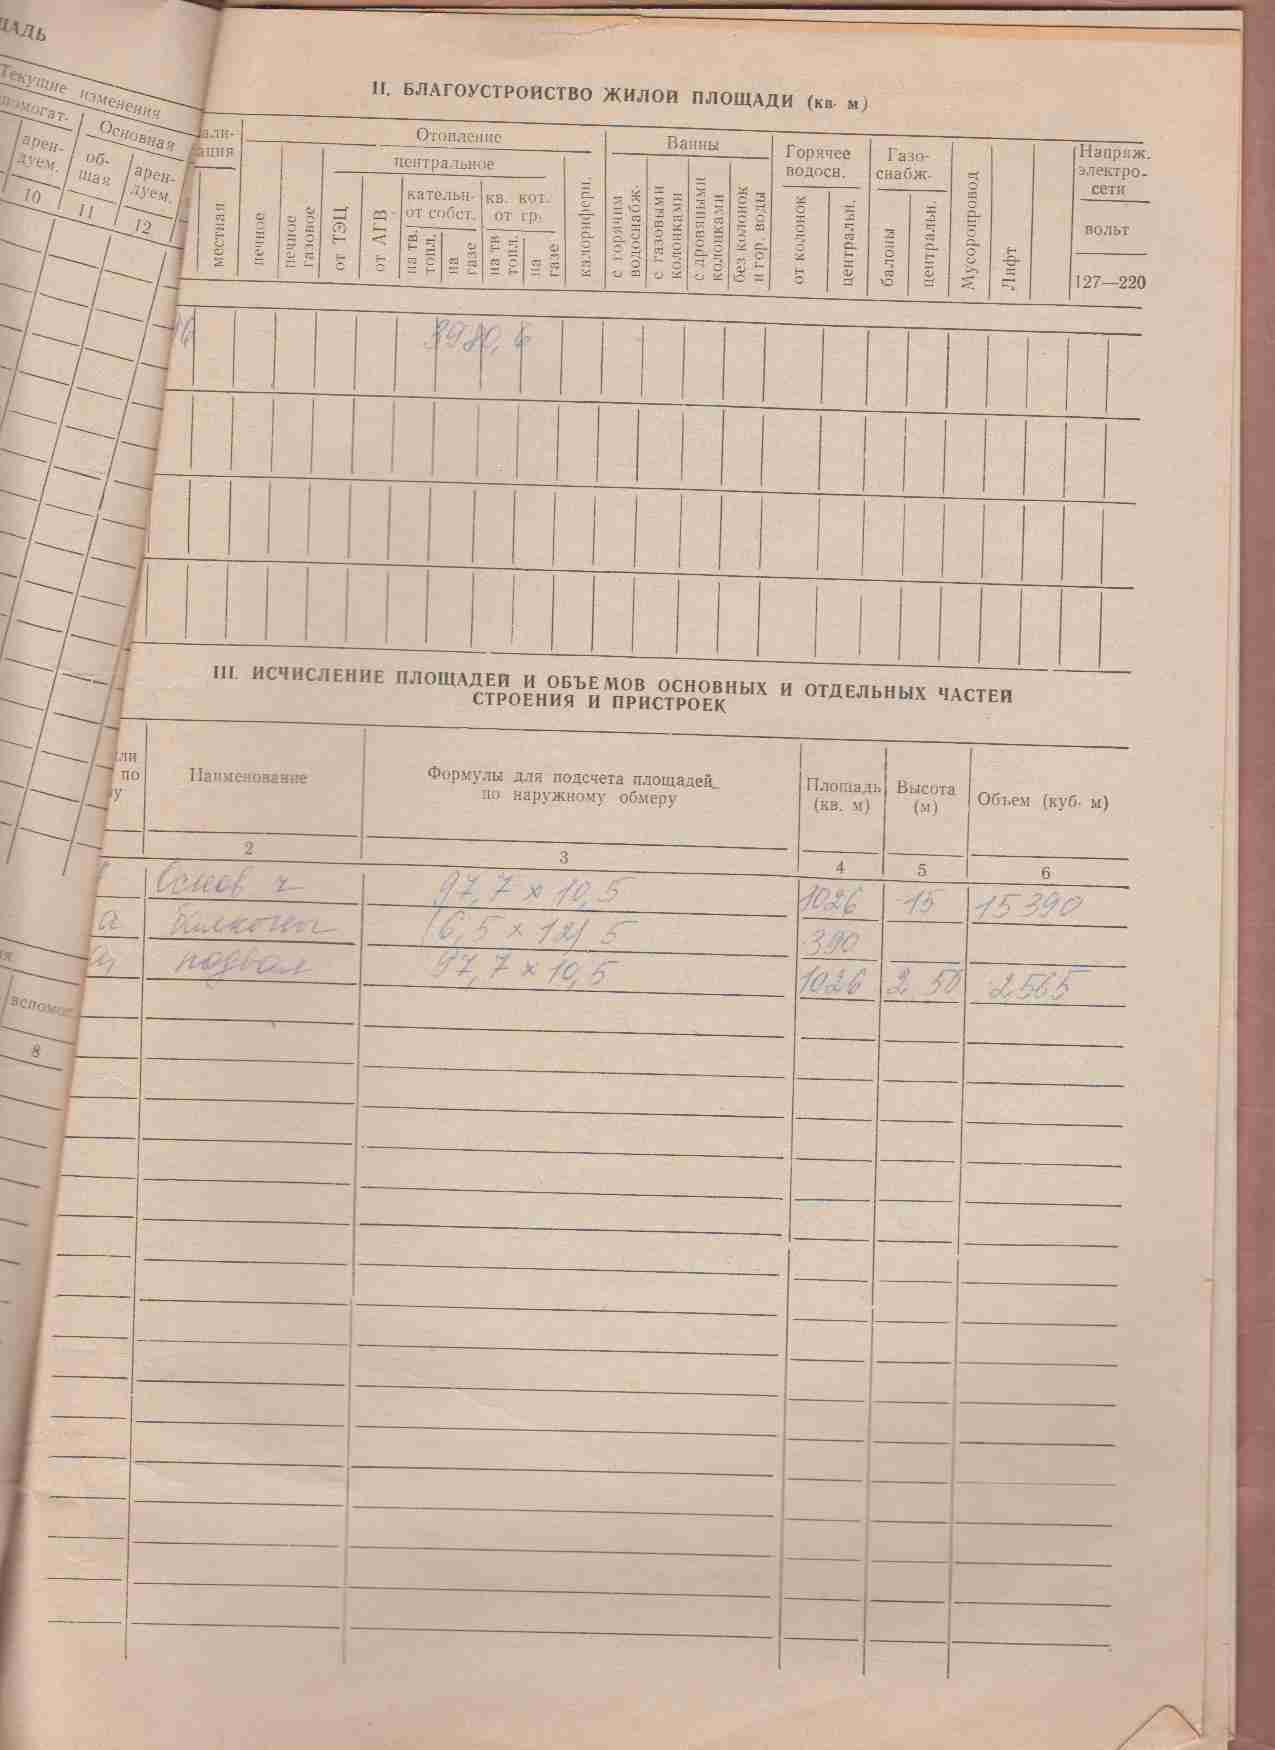 ЩАДЬ
Текущие изменения
помогат.
Основная
арен-
дуем.
об-
щая
арен-
дуем.
10 11 12
вспомог.
8
II. БЛАГОУСТРОЙСТВО ЖИЛОЙ ПЛОЩАДИ (кв. м)
али-
ация
Отопление
Ванны
Горячее
водосн.
Газо-
снабж.
Мусоропровод
Лифт
Напряж.
электро-
сети
вольт
127—220
местная
печное
печное
газовое
центральное
от ТЭЦ
от АГВ
кательн-
от собст.
кв. кот.
от гр.
на тв.
топл.
на
газе
на тв
топл.
на
газе
калорифери.
с горячим
водоснабж.
с газовыми
колонками
с дровяными
колонками
без колонок
и гор. воды
от колонок
центральн.
балоны
центральн.
3980,6
III. ИСЧИСЛЕНИЕ ПЛОЩАДЕЙ И ОБЪЕМОВ ОСНОВНЫХ И ОТДЕЛЬНЫХ ЧАСТЕЙ
СТРОЕНИЯ И ПРИСТРОЕК
ли
по
у
Наименование
Формулы для подсчета площадей
по наружному обмеру
Площадь
(кв. м)
Высота
(м)
Объем (куб. м)
2 3 4 5 6
Основ ч 97,7 x 10,5 1026 15 15390
а Балконы 390
а, подвал 97,7 x 10,5 1026 2,50 2565